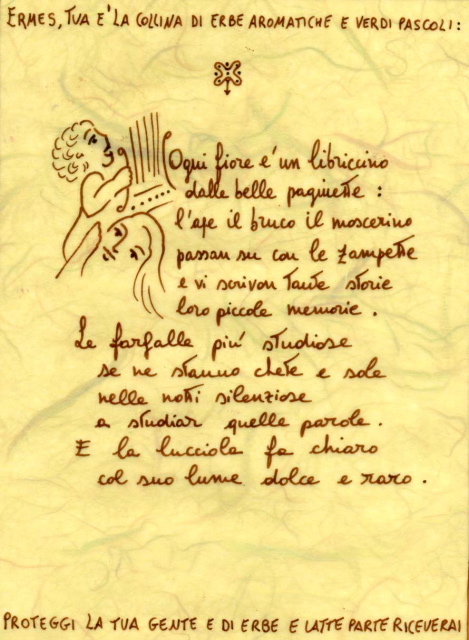 ERMES, TUA E' LA COLLINA DI ERBE AROMATICHE E VERDI PASCOLI:
Ogni fiore e' un libriccino
dalle belle paginette :
l'ape il bruco il moscerino
passan su con le zampette
e vi scrivon tante storie
loro piccole memorie .
Le farfalle piu' studiose
se ne stanno chete e sole
nelle notti silenziose
a studiar quelle parole .
E la lucciola fa chiaro
col suo lume dolce e raro .
PROTEGGI LA TUA GENTE E DI ERBE E LATTE PARTE RICEVERAI